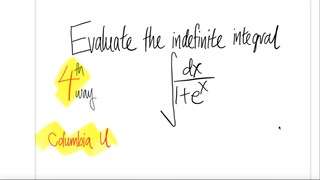 Evaluate the indefinite integral
4th way
∫ dx / 1+e^x
Columbia U